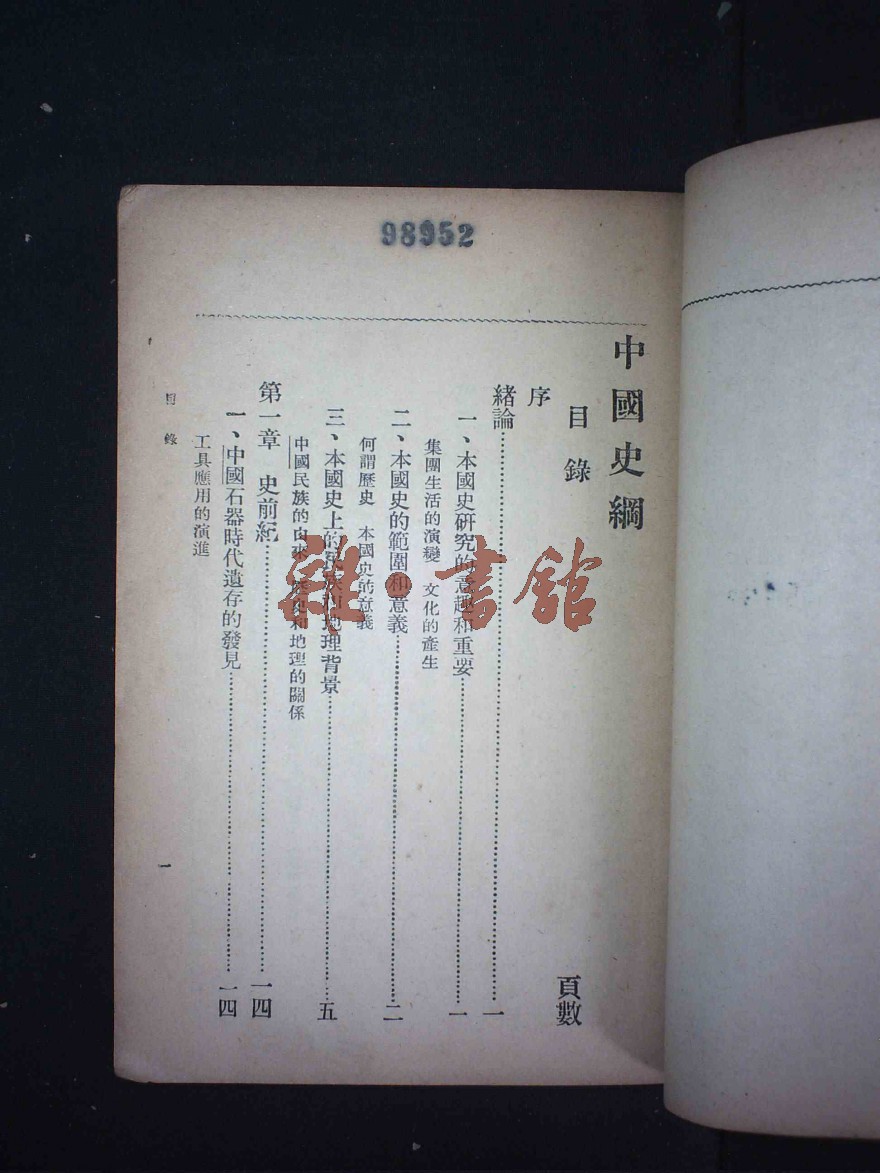 98952
中國史綱
目錄
頁數
序
緒論……一
一、本國史研究的意趣和重要……一
集團生活的演變　文化的產生
二、本國史的範圍和意義……二
何謂歷史　本國史的意義
三、本國史上的民族和地理背景……五
中國民族的由來　歷史和地理的關係
第一章　史前紀……一四
一、中國石器時代遺存的發見……一四
工具應用的演進
目錄
一
雜·書館